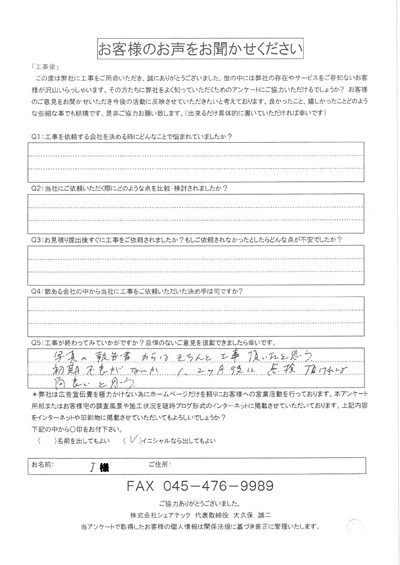 お客様のお声をお聞かせください
「工事後」
この度は弊社に工事をご用命いただき、誠にありがとうございました。世の中には弊社の存在やサービスをご存知ないお客
様が沢山いらっしゃいます。その方たちに弊社をよく知っていただくためのアンケートにご協力いただけるでしょうか？ お客様
のご意見をお聞かせいただき今後の活動に反映させていただきたいと考えております。良かったこと、嬉しかったことどのよう
な些細な事でも結構です。是非ご協力お願い致します。（出来るだけ具体的に書いていただければ幸いです）
Q1：工事を依頼する会社を決める時にどんなことで悩まれていましたか？
Q2：当社にご依頼いただく際にどのような点を比較・検討されましたか？
Q3：お見積り提出後すぐに工事をご依頼されましたか？もしご依頼されなかったとしたらどんな点が不安でしたか？
Q4：数ある会社の中から当社に工事をご依頼いただいた決め手は何ですか？
Q5：工事が終わってみていかがですか？忌憚のないご意見を頂戴できましたら幸いです。
写真の報告書からはきちんと工事頂いたと思う
初期不良がないか 1、2ヶ月後に点検頂ければ
尚良いと思う
＊弊社は広告宣伝費を極力かけない為にホームページだけを頼りにお客様への営業活動を行っております。本アンケート
用紙またはお客様宅の調査風景や施工状況を随時ブログ形式のインターネットに掲載させていただいております。上記内容
をインターネットや印刷物に掲載させていただいてもよろしいでしょうか？
下記の中から○印をお付下さい。
（ ）名前を出してもよい （✓）イニシャルなら出してもよい
お名前： 様 ご住所：
FAX 045-476-9989
ご協力ありがとうございました。
株式会社シェアテック 代表取締役 大久保 誠二
当アンケートで取得したお客様の個人情報は関係法規に基づき厳正に管理いたします。